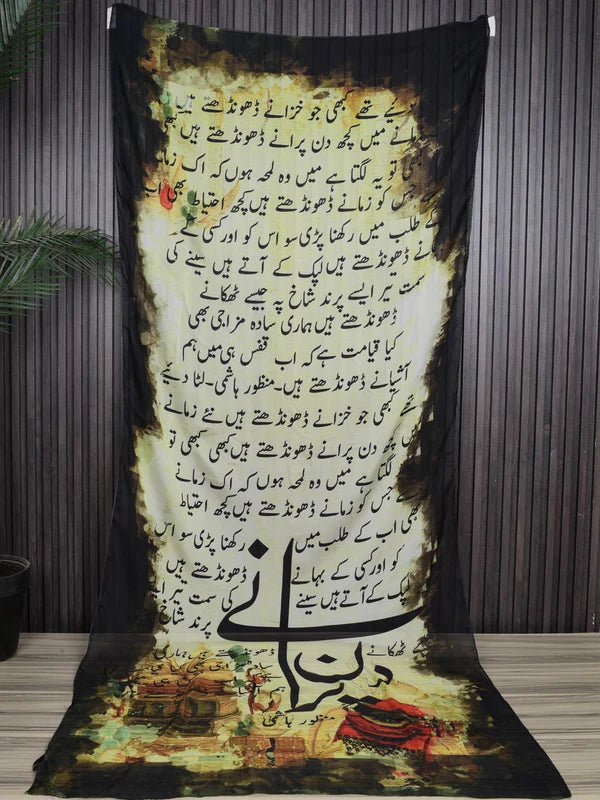 دیئے تھے کبھی جو خزانے ڈھونڈھتے ہیں
زمانے میں کچھ دن پرانے ڈھونڈھتے ہیں کبھی
کبھی تو یہ لگتا ہے میں وہ لمحہ ہوں کہ اک زمانے
سے جس کو زمانے ڈھونڈھتے ہیں کچھ احتیاط بھی اب
کے طلب میں رکھنا پڑی سو اس کو اور کسی کے
بہانے ڈھونڈھتے ہیں لپک کے آتے ہیں سینے کی
سمت تیر ایسے پرند شاخ پہ جیسے ٹھکانے
ڈھونڈھتے ہیں ہماری سادہ مزاجی بھی
کیا قیامت ہے کہ اب قفس ہی میں ہم
آشیانے ڈھونڈھتے ہیں۔ منظور ہاشمی۔ لٹا دیئے
تھے کبھی جو خزانے ڈھونڈھتے ہیں نئے زمانے
میں کچھ دن پرانے ڈھونڈھتے ہیں کبھی کبھی تو
لگتا ہے میں وہ لمحہ ہوں کہ اک زمانے
سے جس کو زمانے ڈھونڈھتے ہیں کچھ احتیاط
بھی اب کے طلب میں رکھنا پڑی سو اس
کو اور کسی کے بہانے ڈھونڈھتے ہیں
لپک کے آتے ہیں سینے کی سمت تیر
پرند شاخ
کے ٹھکانے ڈھونڈھتے ہیں ہماری
سادہ
ہم
دن پرانے
منظور ہاشمی